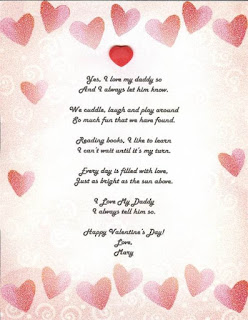 Yes, I love my daddy so
And I always let him know.
We cuddle, laugh and play around
So much fun that we have found.
Reading books, I like to learn
I can't wait until it's my turn.
Every day is filled with love,
Just as bright as the sun above.
I Love My Daddy
I always tell him so.
Happy Valentine's Day!
Love,
Mary